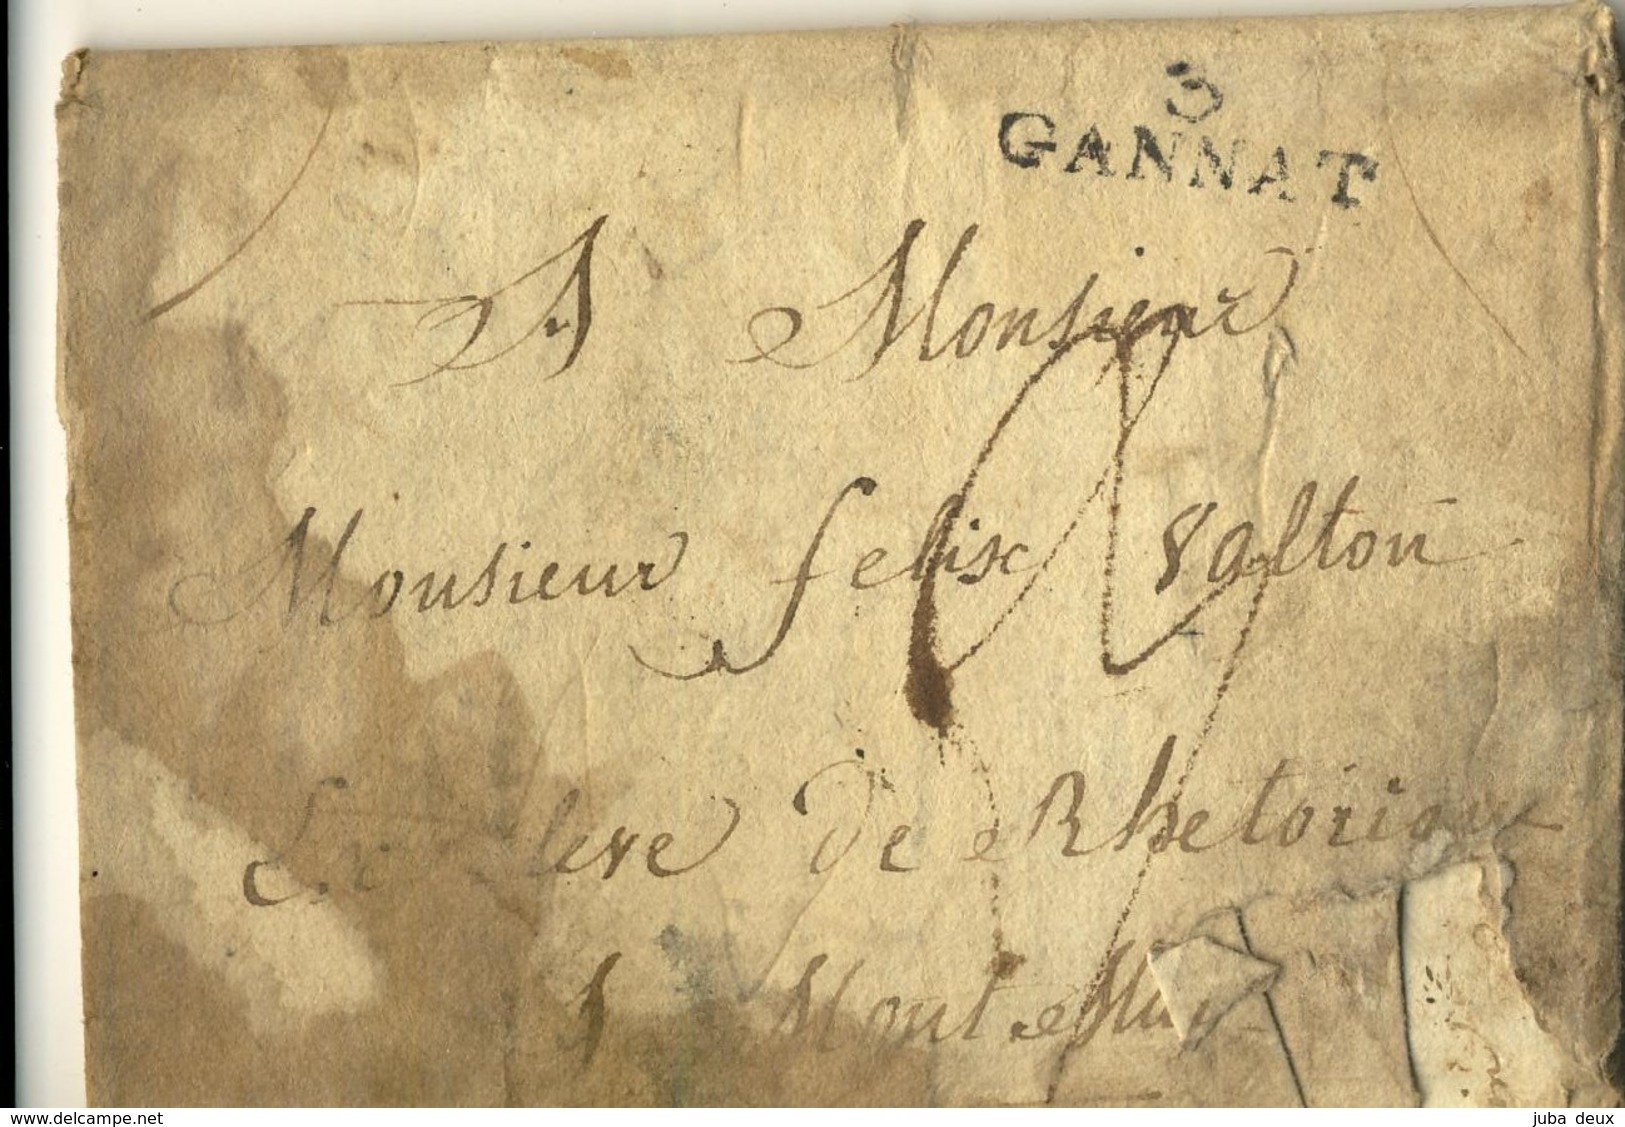 3
GANNAT
A Monsieur
Monsieur felix Valton
de Rhetorique
A Mont
www.delcampe.net
juba deux